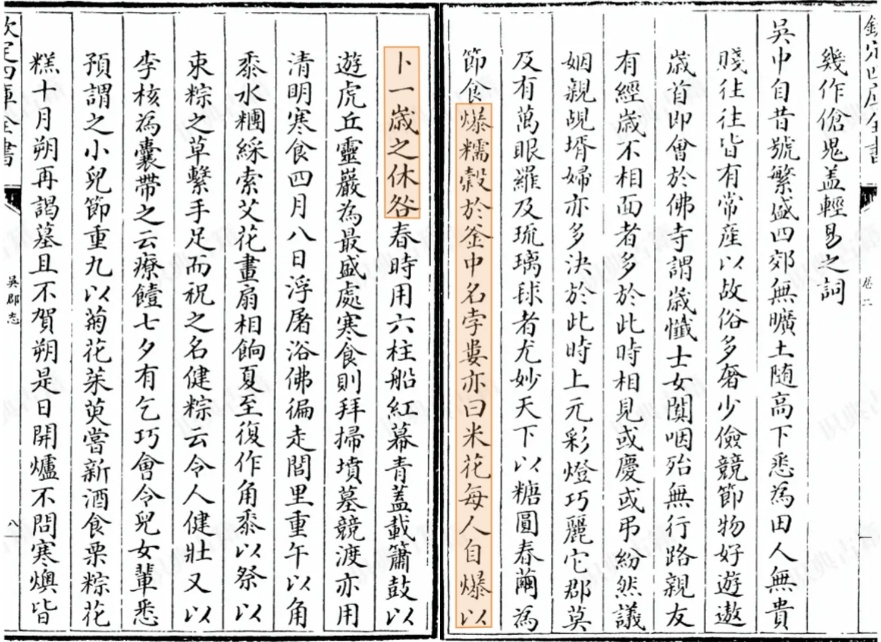 欽定四庫全書
卷二
幾作傖鬼蓋輕易之詞
吳中自昔號繁盛四郊無曠土随高下悉為田人無貴
賤往往皆有常産以故俗多奢少儉競節物好遊遨
歳首即會於佛寺謂歳懺士女闐咽殆無行路親友
有經歳不相面者多於此時相見或慶或弔紛然議
姻親覘壻婦亦多決於此時上元彩燈巧麗它郡莫
及有萬眼羅及琉璃毬者尤妙天下以糖圓春繭為
節食爆糯榖於釜中名孛婁亦曰米花每人自爆以
卜一歳之休咎春時用六柱船紅幕青蓋載簫鼓以
遊虎丘靈巖為最盛處寒食則拜掃墳墓競渡亦用
清明寒食四月八日浮屠浴佛徧走閭里重午以角
黍水糰綵索艾花畫扇相餉夏至復作角黍以祭以
束粽之草繫手足而祝之名健粽云令人健壯又以
李核為囊帶之云療饐七夕有乞巧會令兒女輩悉
預謂之小兒節重九以菊花茱萸嘗新酒食栗粽花
糕十月朔再謁墓且不賀朔是日開爐不問寒燠皆
欽定四庫全書
吳郡志
八